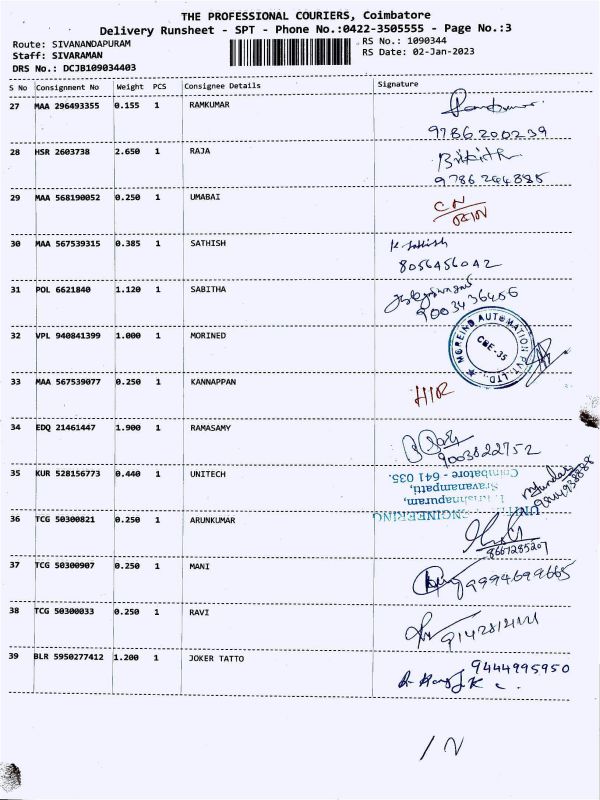 THE PROFESSIONAL COURIERS, Coimbatore
Delivery Runsheet - SPT - Phone No.:0422-3505555 - Page No.:3
Route: SIVANANDAPURAM
RS No.: 1090344
Staff: SIVARAMAN
RS Date: 02-Jan-2023
DRS No.: DCJB109034403
S No Consignment No Weight PCS Consignee Details Signature
27 MAA 296493355 0.155 1 RAMKUMAR
9786200239
28 HSR 2603738 2.650 1 RAJA
9786244885
29 MAA 568190052 0.250 1 UMABAI
CN
30 MAA 567539315 0.385 1 SATHISH
K. Sathish
8056456042
31 POL 6621840 1.120 1 SABITHA
9003436456
32 VPL 940841399 1.000 1 MORINED
MOREIND AUTOMATION PVT. LTD.
CBE-35
33 MAA 567539077 0.250 1 KANNAPPAN
34 EDQ 21461447 1.900 1 RAMASAMY
9003822752
35 KUR 528156773 0.440 1 UNITECH
ENGINEERING
Sravanampatti,
Coimbatore - 641 035.
36 TCG 50300821 0.250 1 ARUNKUMAR
8667285207
37 TCG 50300907 0.250 1 MANI
9994699665
38 TCG 50300033 0.250 1 RAVI
39 BLR 5950277412 1.200 1 JOKER TATTO
9444995950